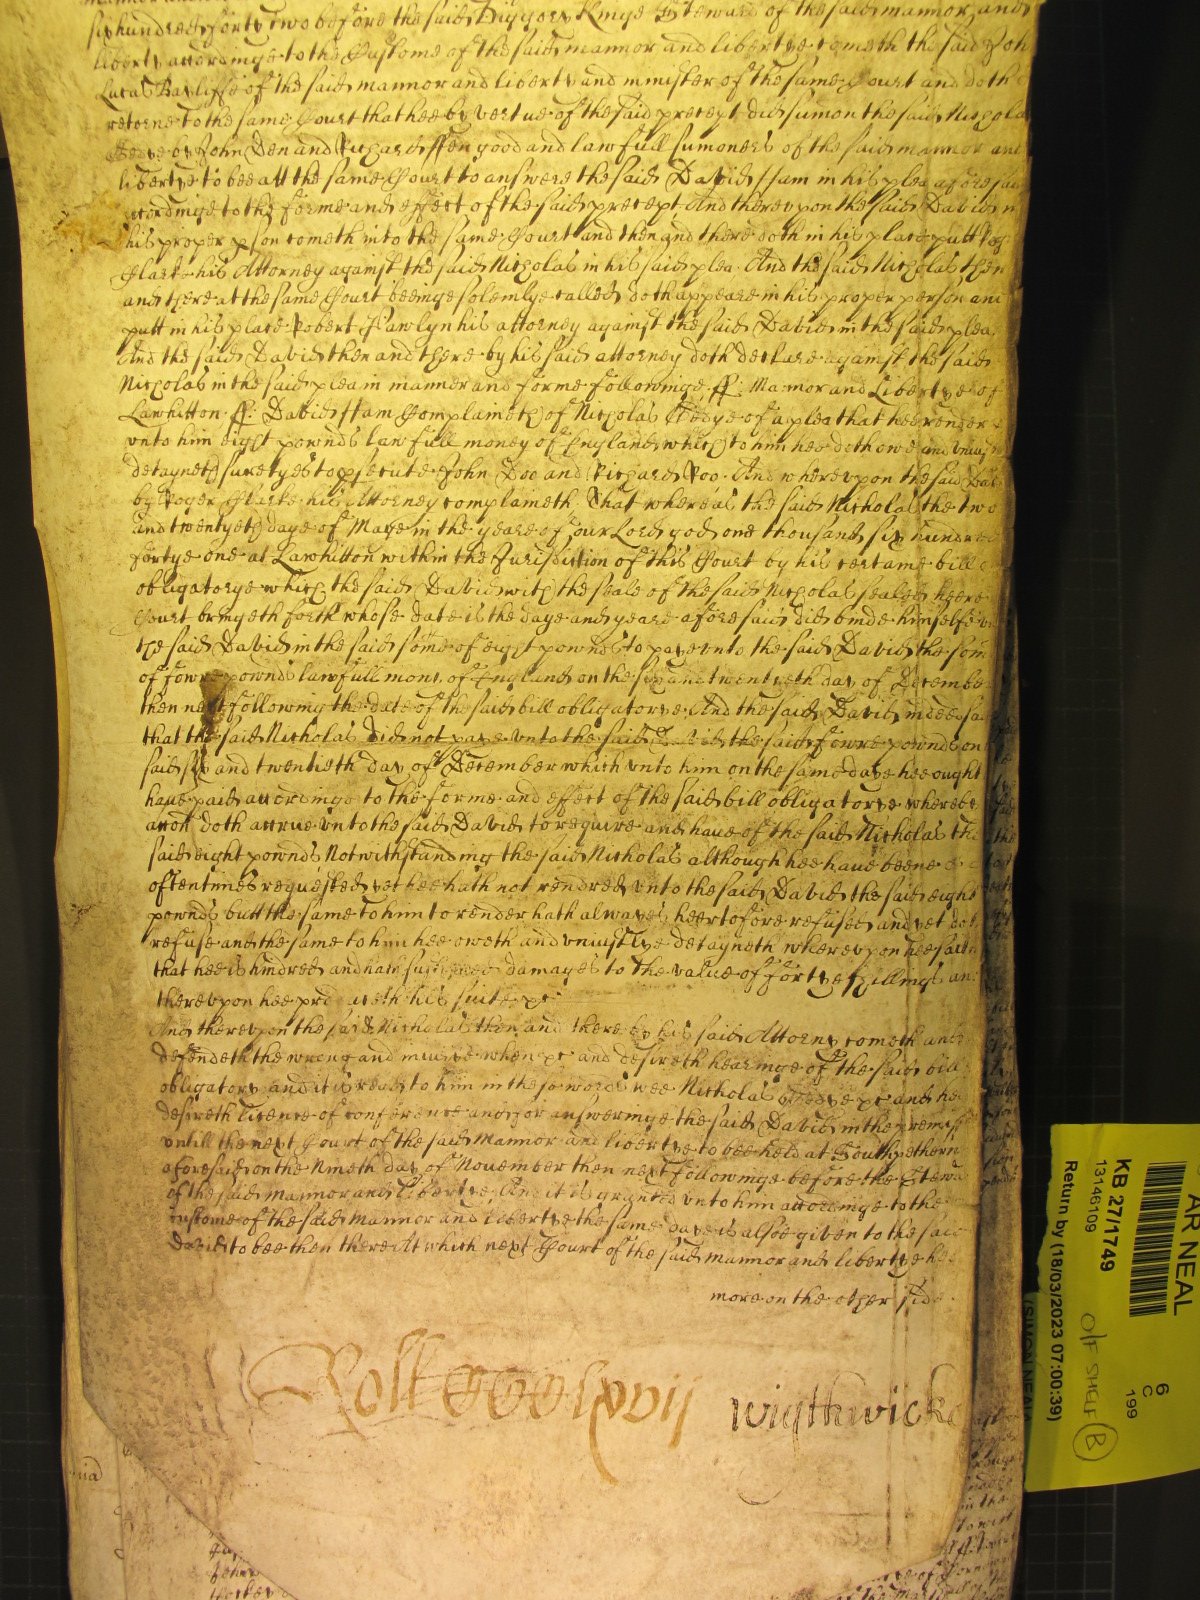 sixhundred forty two before the said Diggory Kinge Steward of the said mannor and
liberty accordinge to the Custome of the said mannor and libertye cometh the said Joh
Lucas Bayliffe of the said mannor and liberty and minister of the same Court and doth
retorne to the same Court that hee by vertue of the said precept did sumon the said Nichola
by John Den and Richard Fen good and lawfull sumoners of the said mannor and
libertye to bee att the same Court to answere the said David Ham in his plea aforesai
accordinge to the forme and effect of the said precept And therevpon the said David in
his proper pson cometh into the same Court and then and there doth in his place putt Rog
Clarke his Attorney against the said Nicholas in his said plea. And the said Nicholas then
and there at the same Court beeinge solemlye called doth appeare in his proper person and
putt in his place Robert Hawlyn his attorney against the said David in the said plea.
And the said David then and there by his said attorney doth declare against the said
Nicholas in the said plea in manner and forme followinge ff: Mannor and Libertye of
Lawhitton ff: David Ham Complaineth of Nicholas of a plea that hee render
vnto him eight pownds lawfull money of England which to him hee doth owe and vniust
detayneth suretyes to psecute John Doo and Richard Roo. And wherevpon the said Dav
by Roger Clarke his Attorney complaineth That whereas the said Nicholas the two
and twentyeth daye of Maye in the yeare of our Lord god one thousand six hundred
fortye one at Lawhitton within the Jurisdiction of this Court by his certaine bill
obligatorye which the said David with the seale of the said Nicholas sealed heere
Court bringeth forth whose date is the daye and yeare aforesaid did binde himselfe vn
the said David in the said some of eight pownds to paye vnto the said David the som
of fowre pownds lawfull mony of England on the six and twentieth day of Decembe
then next following the date of the said bill obligatorye. And the said David indeed sai
that the said Nicholas did not paye vnto the said David the said fowre pownds on
said six and twentieth day of December which vnto him on the same daye hee ought
haue paid accordinge to the forme and effect of the said bill obligatorye whereby
accon doth accrue vnto the said David to require and haue of the said Nicholas the
said eight pownds Notwithstanding the said Nicholas although hee haue beene
oftentimes requested yet hee hath not rendred vnto the said David the said eight
pownds butt the same to him to render hath alwayes heertofore refused and yet dot
refuse and the same to him hee oweth and vniustlye detayneth wherevpon hee saith
that hee is hindred and hath susteyned damages to the value of fortye shillings and
therevpon hee prduceth his suite &c
And therevpon the said Nicholas then and there by his said Attorny cometh and
defendeth the wrong and iniurie when &c and desireth hearinge of the said bill
obligatory and it is read to him in theis words wee Nicholas &c and hee
desireth licence of conference and for answeringe the said David in the premiss
vntill the next Court of the said Mannor and libertye to bee held at Southpethern
aforesaid on the Nineth day of November then next followinge before the Stewa
of the said mannor and Libertye And it is granted vnto him accordinge to the
custome of the said Mannor and Libertye the same daye is alsoe given to the said
David to bee then there At which next Court of the said mannor and libertye he
more on the other side
Roll CCCClxvij wigthwicke
AR NEAL
KB 27/1749
13146109
Return by (18/03/2023 07:00:39)
6
C
199
O/F SHELF
B
(SIMON NEAL)